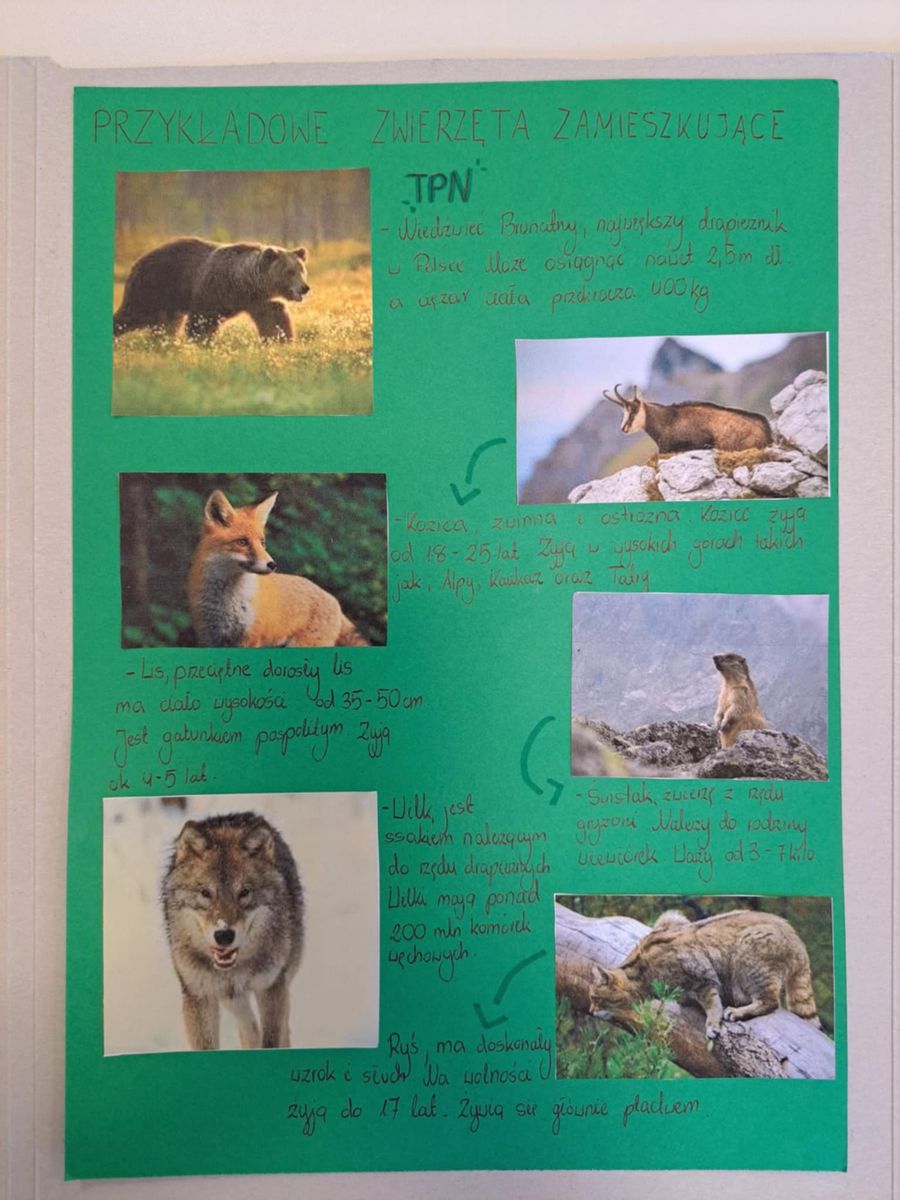 PRZYKŁADOWE ZWIERZĘTA ZAMIESZKUJĄCE
"TPN"
- Niedźwieć Brunatny, największy drapieżnik
w Polsce Może osiągnąć nawet 2,5m dł.
a ciężar ciała przekracza 400kg
- Kozica, zwinna i ostrożna. Kozice żyją
od 18-25 lat. Żyją w wysokich górach takich
jak, Alpy, Kawkaz oraz Tatry
- Lis, przeciętne dorosły lis
ma ciało wysokości od 35-50cm
Jest gatunkiem pospolitym Żyją
ok 4-5 lat.
- Świstak, zwierzę z rzędu
gryzoni Należy do rodziny
wiewiórek. Waży od 3-7kilo
- Wilk, jest
ssakiem należącym
do rzędu drapieżnych
Wilki mają ponad
200 mln komórek
węchowych.
Ryś, ma doskonały
wzrok i słuch. Na wolności
żyją do 17 lat. Żywią się głównie ptactwem.